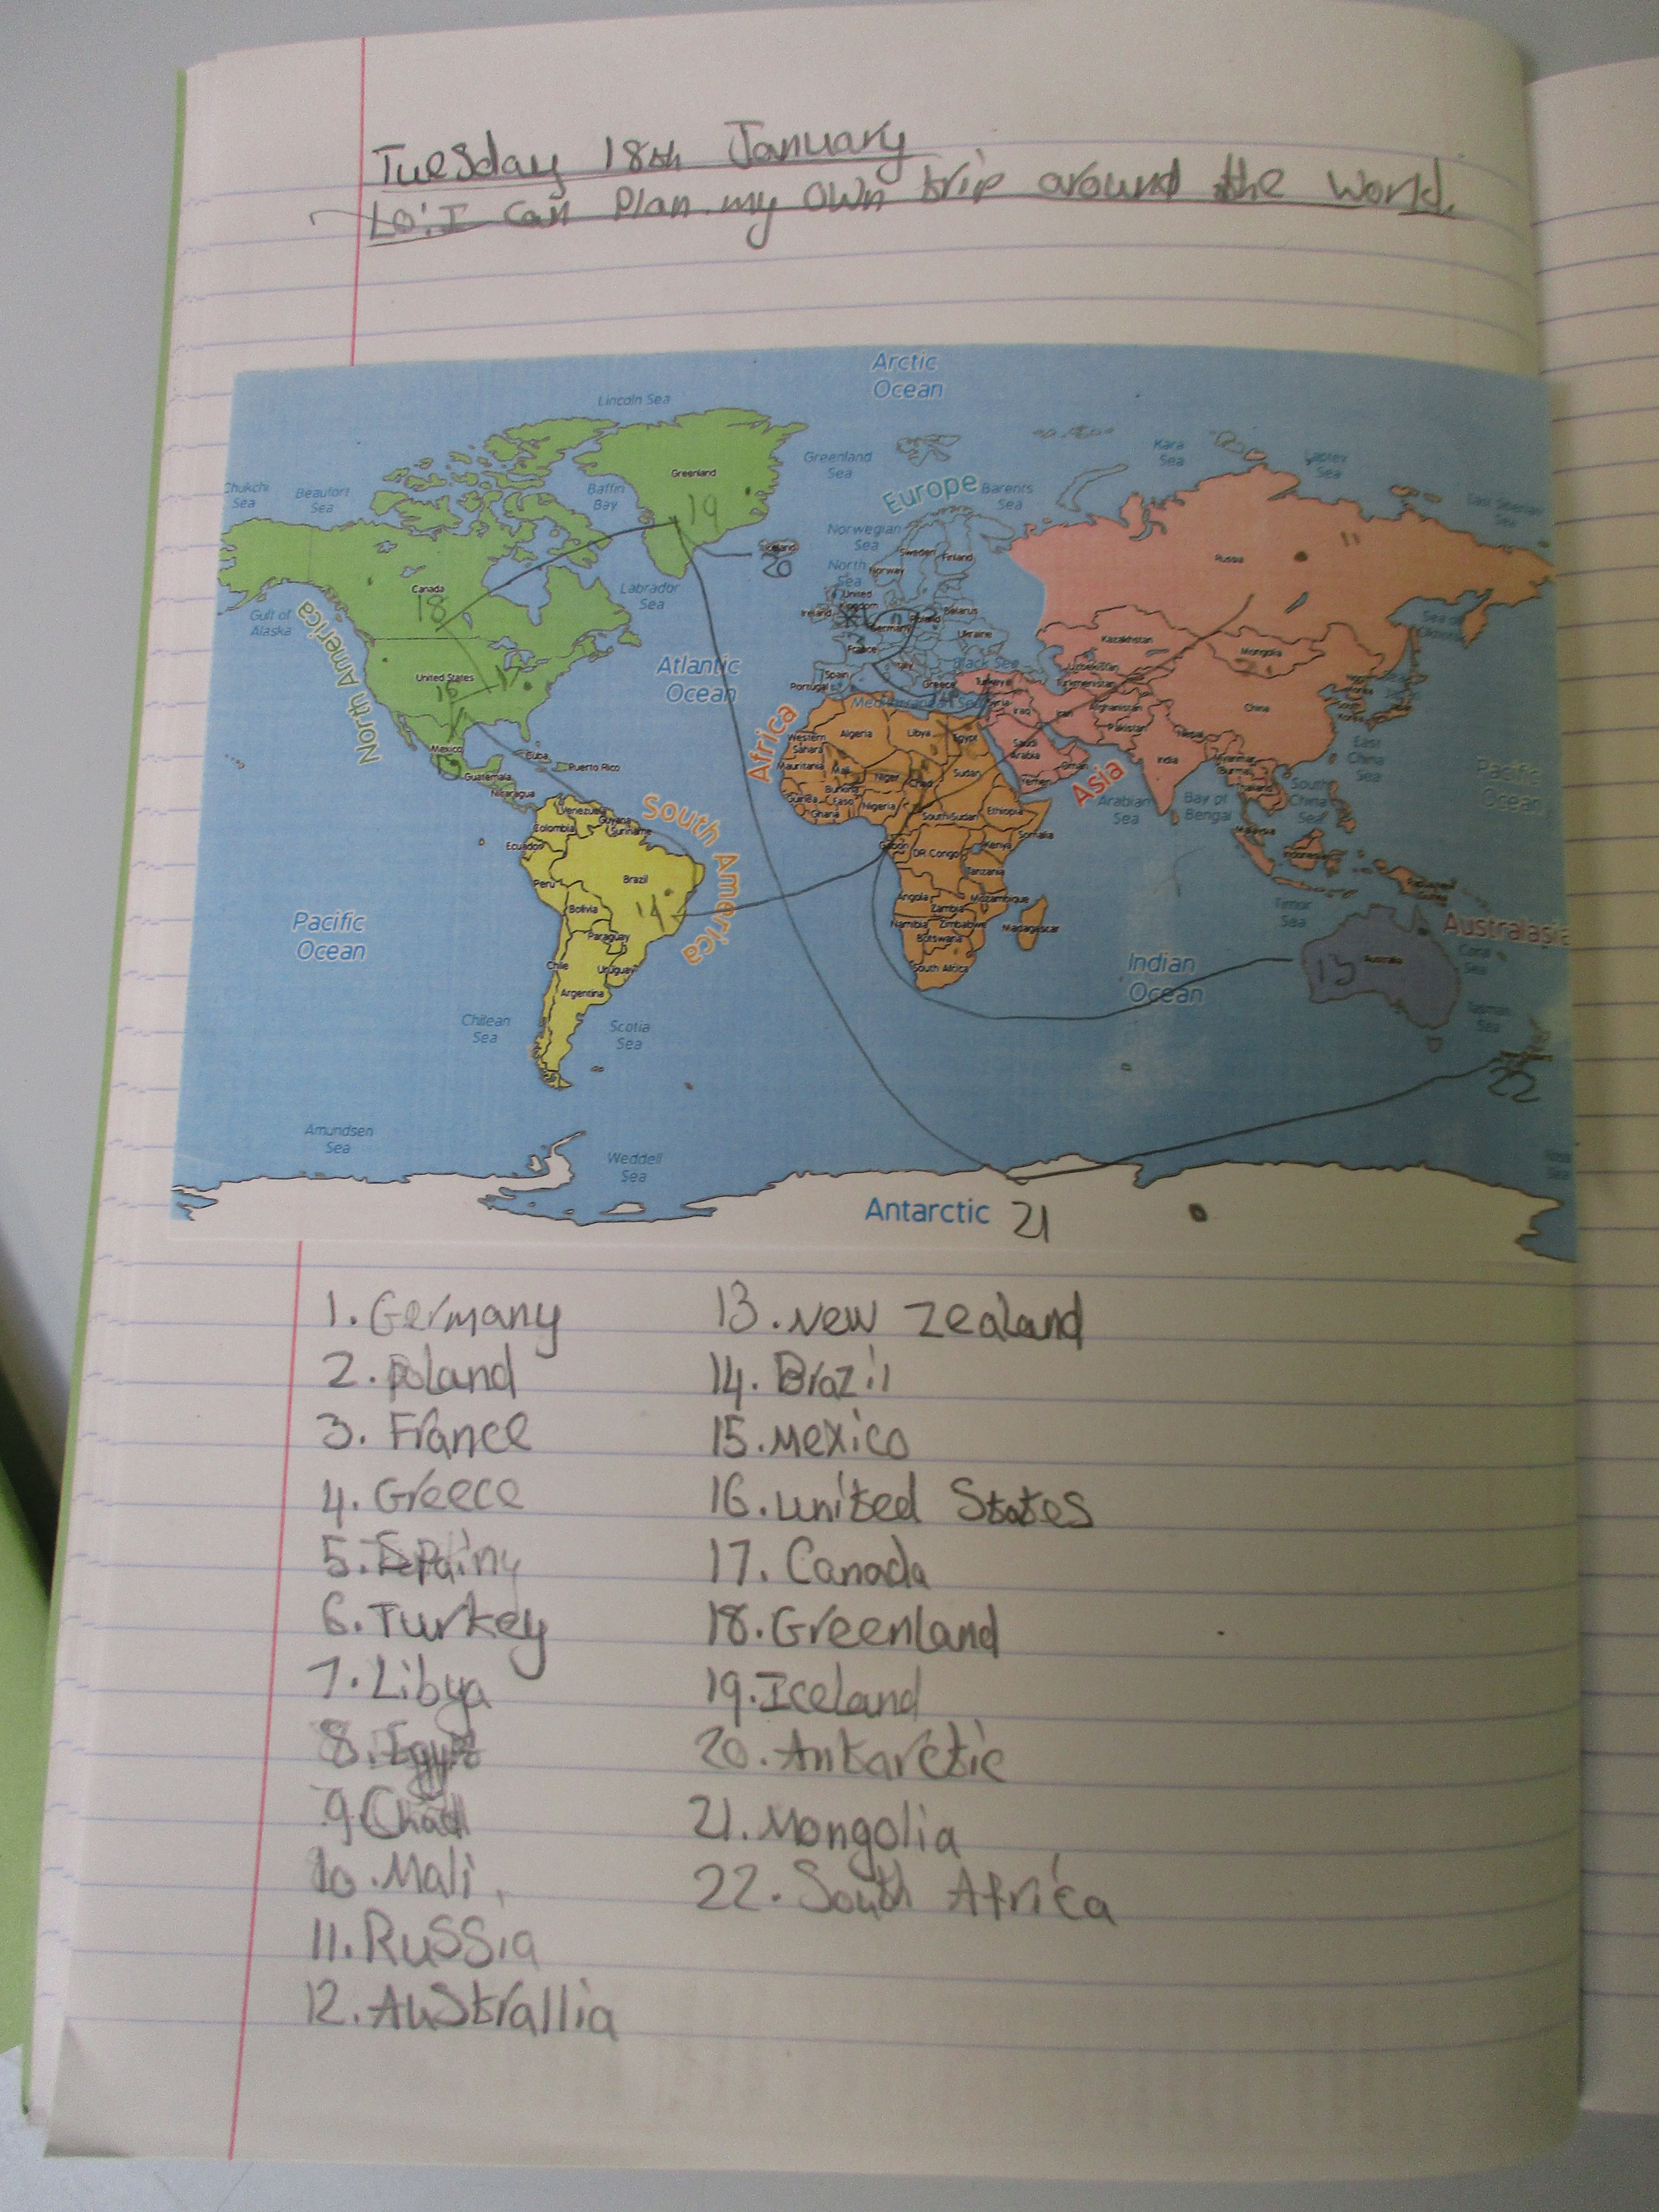 Tuesday 18th January
LO: I can Plan my own trip around the World.
Arctic Ocean
Lincoln Sea
Greenland
Greenland Sea
Kara Sea
Laptev Sea
East Siberian Sea
Chukchi Sea
Beaufort Sea
Baffin Bay
19
Europe
Barents Sea
Norwegian Sea
11
Russia
Sweden
Finland
Norway
North Sea
Iceland
20
Canada
18
Labrador Sea
Gulf of Alaska
North America
United Kingdom
Ireland
Belarus
Poland
Germany
Ukraine
France
Kazakhstan
Mongolia
Atlantic Ocean
United States
16
17
Italy
Black Sea
Uzbekistan
Turkmenistan
Spain
Portugal
Greece
Turkey
Mediterranean Sea
Syria
Iraq
Iran
Afghanistan
China
Africa
Western Sahara
Algeria
Libya
Egypt
Saudi Arabia
Pakistan
Nepal
East China Sea
Mexico
Cuba
Puerto Rico
Guatemala
Nicaragua
Mauritania
Mali
Niger
Chad
Sudan
Oman
Yemen
India
Myanmar
Burma
Asia
Pacific Ocean
South America
Venezuela
Guyana
Suriname
Colombia
Ecuador
Guinea
Burkina Faso
Ghana
Nigeria
South Sudan
Ethiopia
Somalia
Arabian Sea
Bay of Bengal
South China Sea
Malaysia
Gabon
DR Congo
Kenya
Tanzania
Indonesia
Peru
Brazil
Bolivia
14
Angola
Zambia
Mozambique
Timor Sea
Paraguay
Namibia
Zimbabwe
Botswana
Madagascar
Australasia
Coral Sea
Pacific Ocean
Chile
Uruguay
South Africa
Indian Ocean
Australia
13
Argentina
Chilean Sea
Scotia Sea
Tasman Sea
22
Amundsen Sea
Weddell Sea
Ross Sea
Antarctic 21
1. Germany
2. Poland
3. France
4. Greece
5.
6. Turkey
7. Libya
8. Egypt
9 Chad
10. Mali
11. Russia
12. Australlia
13. New Zealand
14. Brazil
15. Mexico
16. United States
17. Canada
18. Greenland
19. Iceland
20. Antarctic
21. Mongolia
22. South Africa